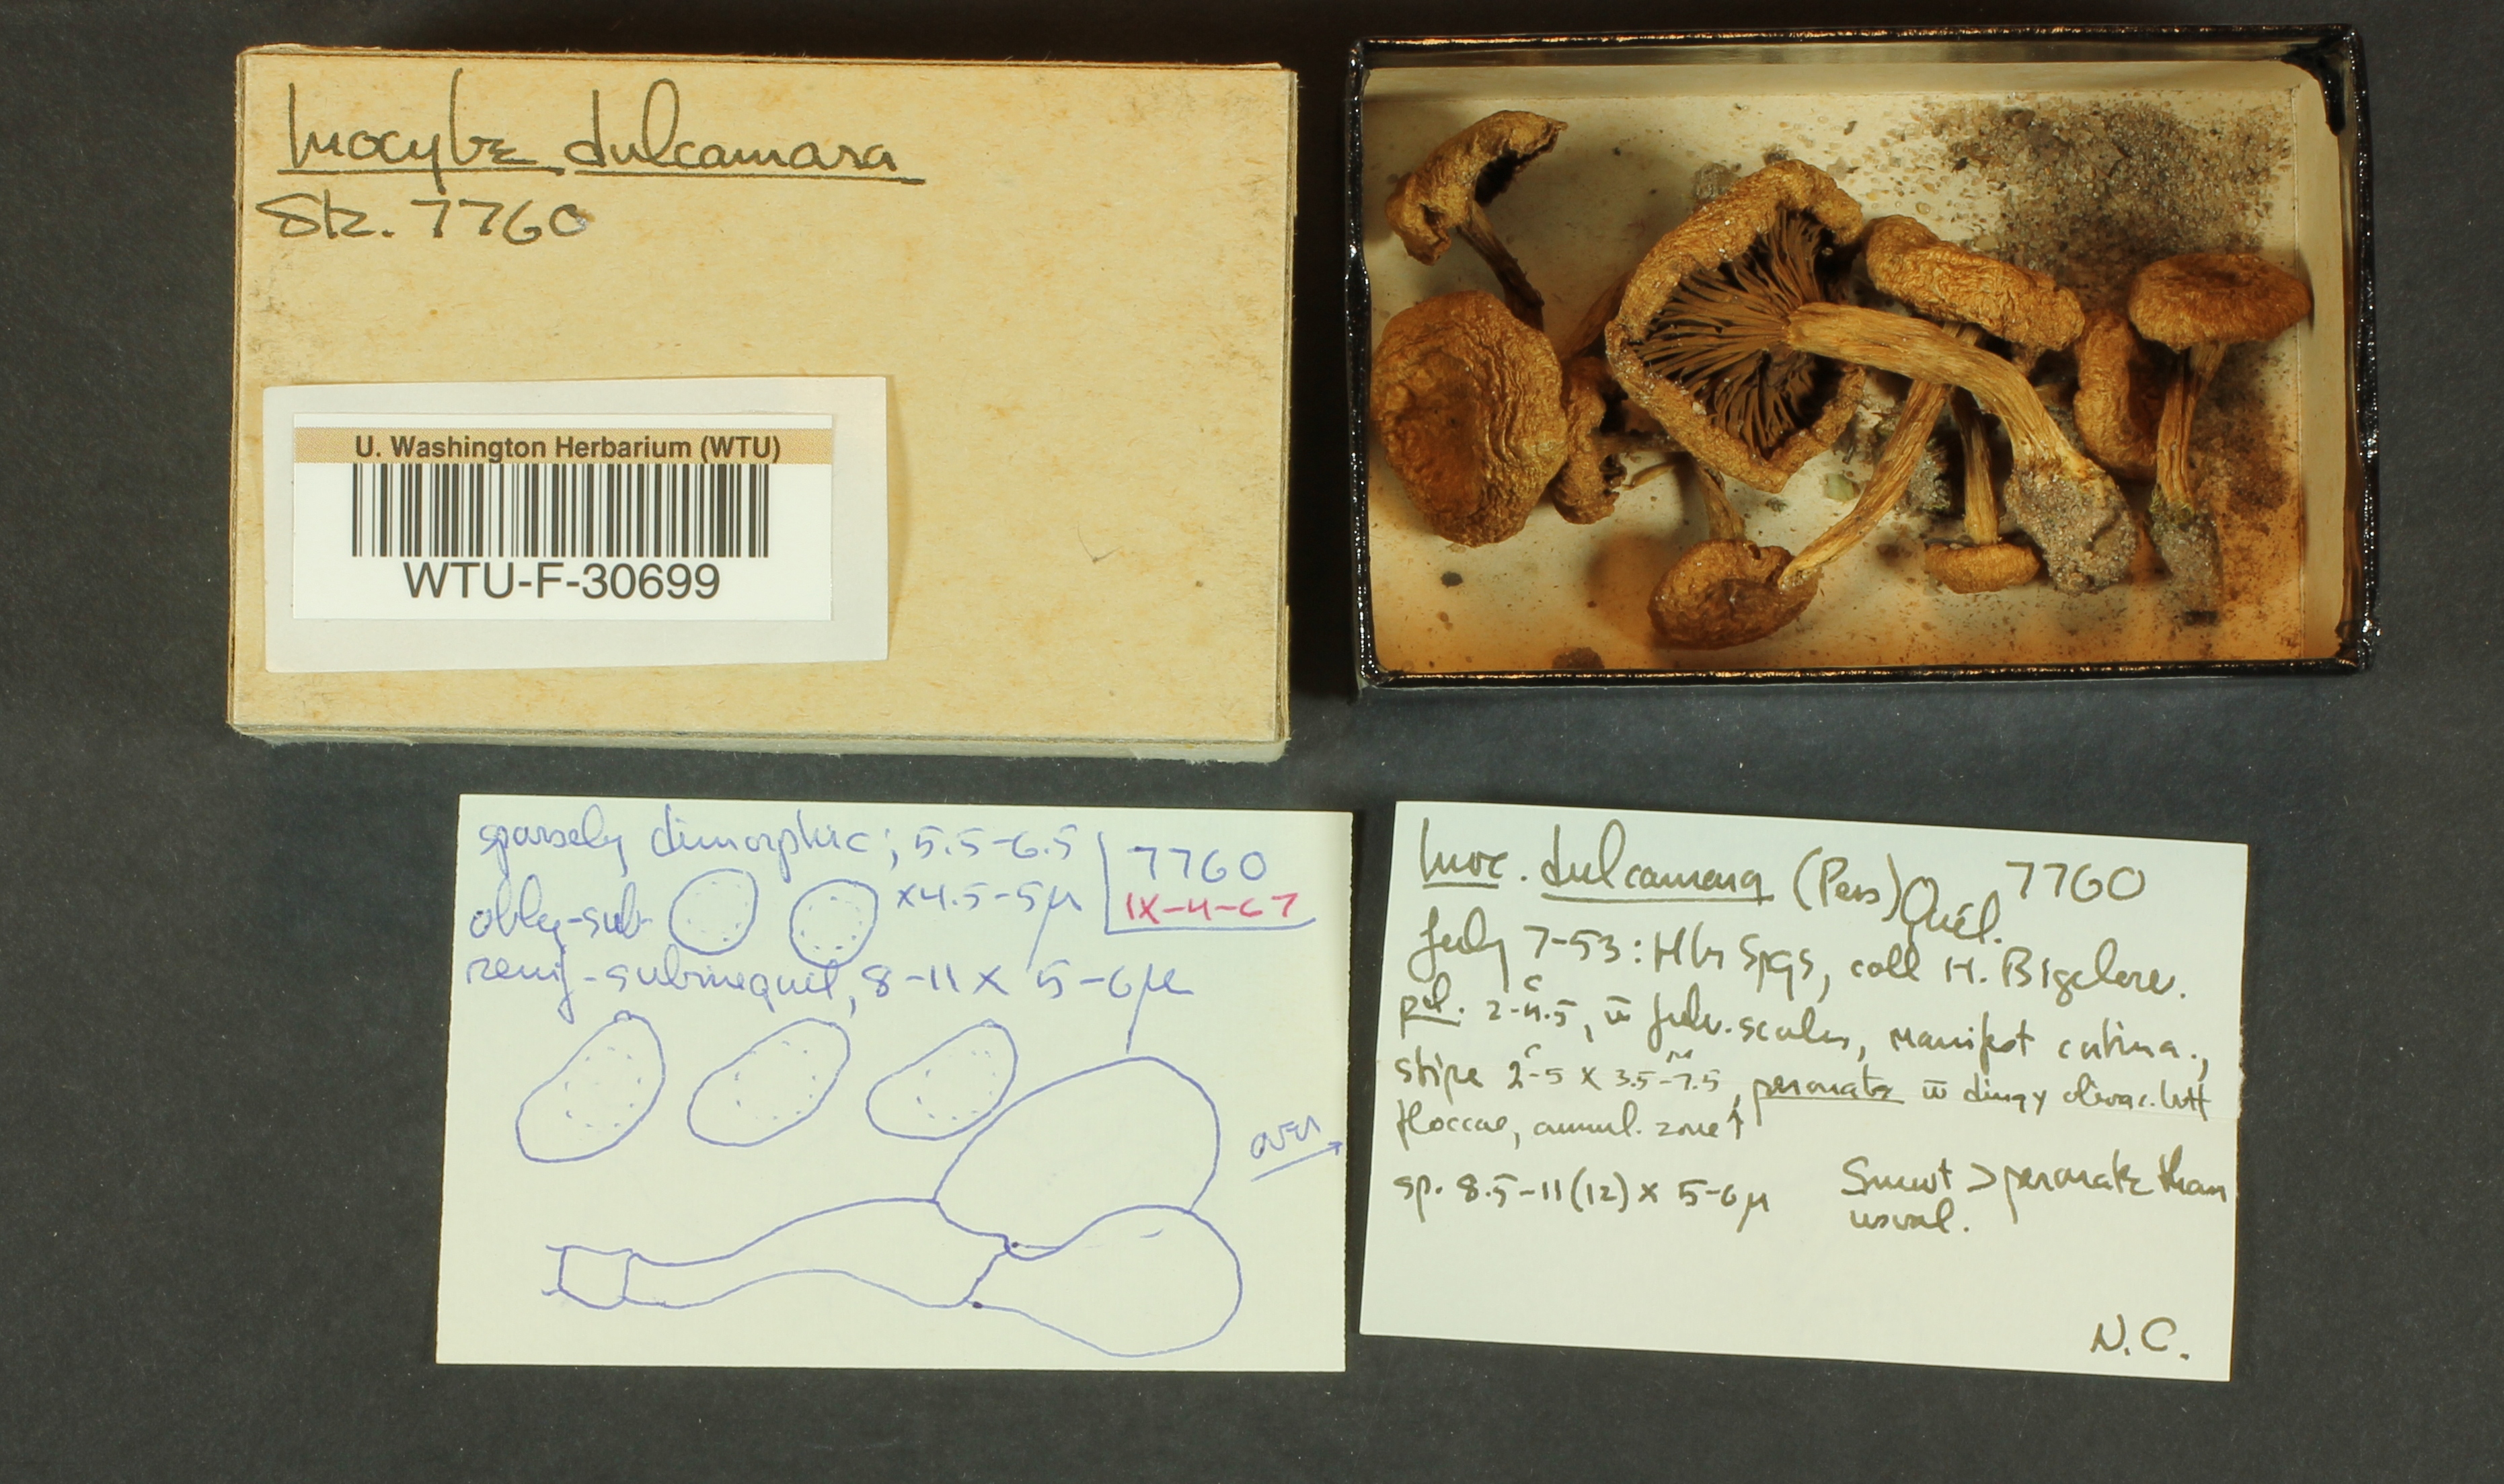 Inocybe dulcamara
Stz. 7760
U. Washington Herbarium (WTU)
WTU-F-30699
sparsely dimorphic; 5.5-6.5
x 4.5-5μ
7760
IX-4-67
oblg-sub
renif-subinequil, 8-11 x 5-6μ
over
Inoc. dulcamara (Pers) Quél. 7760
July 7-53: Hbr Spgs, coll H. Bigelow.
pil. 2-4.5, w̄ fulv. scales, manifest cortina.,
stipe 2-5 x 3.5-7.5, peronate w̄ dingy olivac.
floccae, annul. zone ↑
sp. 8.5-11(12) x 5-6μ
> peronate than
usual.
N.C.